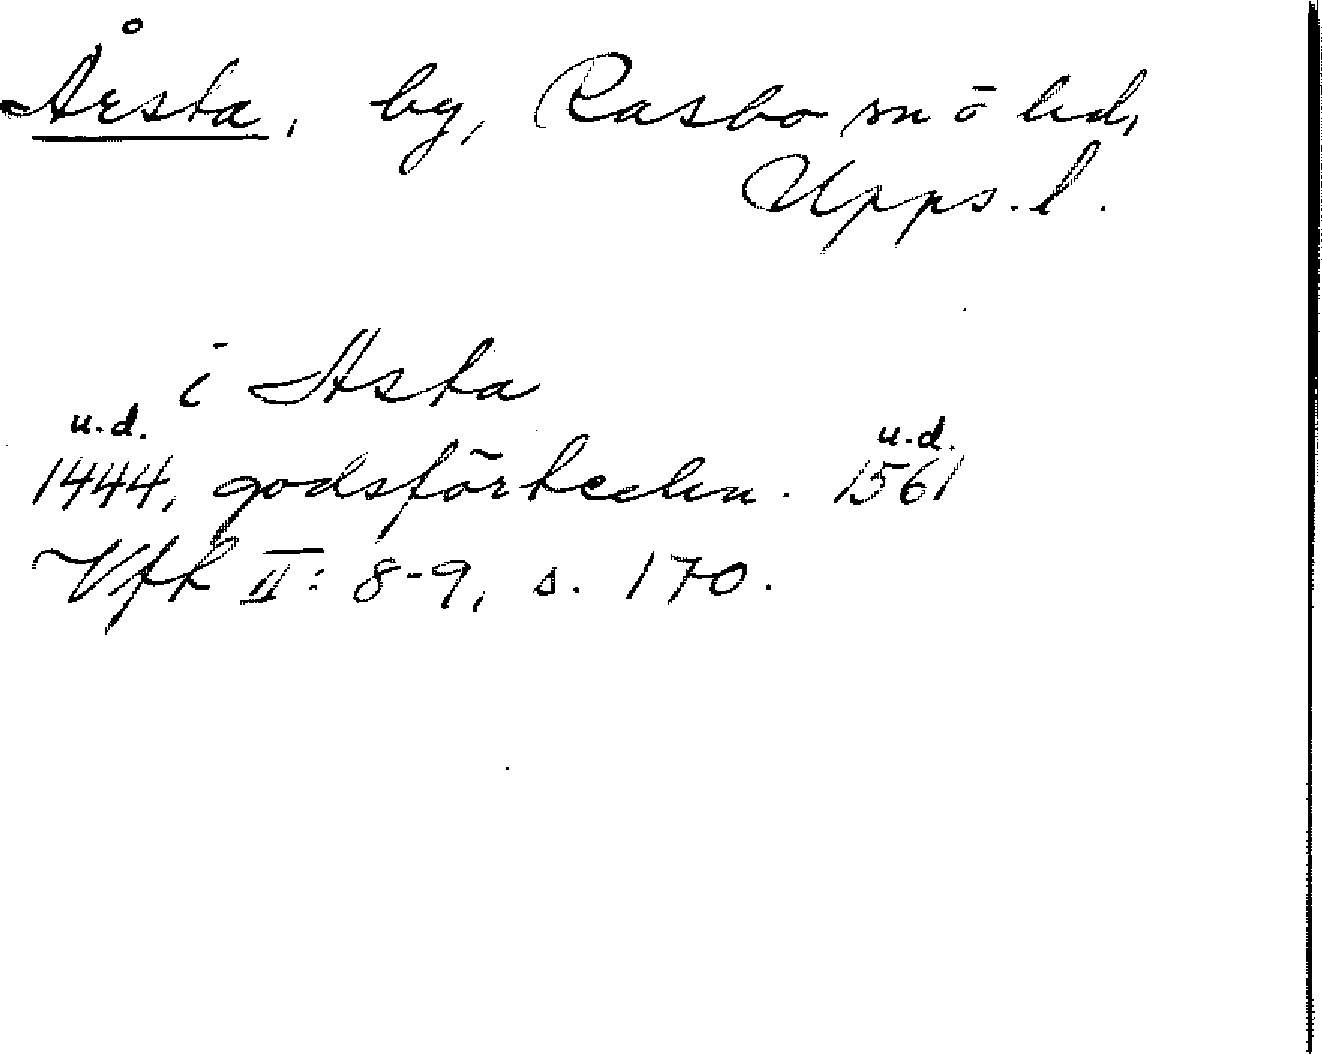 Årsta, by, Rasbo sn o hd,
Upps. l.
i Asta
u.d. u.d.
1444, godsförteckn. 1561
Vfk II: 8-9, s. 170.